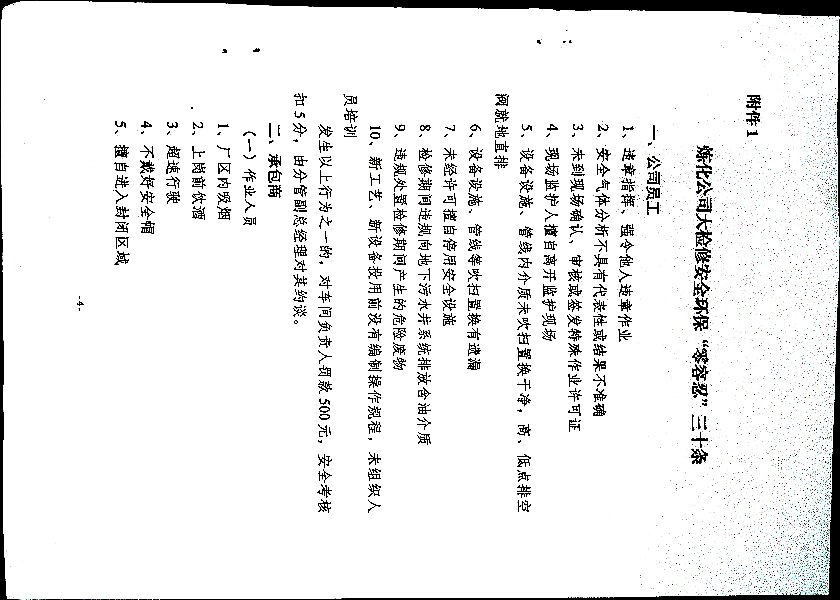 附件1
炼化公司大检修安全环保“零容忍”三十条
一、公司员工
1、违章指挥、强令他人违章作业
2、安全气体分析不具有代表性或结果不准确
3、未到现场确认、审核或签发特殊作业许可证
4、现场监护人擅自离开监护现场
5、设备设施、管线内介质未吹扫置换干净，高、低点排空
阀就地直排
6、设备设施、管线等吹扫置换有遗漏
7、未经许可擅自停用安全设施
8、检修期间违规向地下污水井系统排放含油介质
9、违规处置检修期间产生的危险废物
10、新工艺、新设备投用前没有编制操作规程，未组织人
员培训
发生以上行为之一的，对车间负责人罚款500元，安全考核
扣5分，由分管副总经理对其约谈。
二、承包商
（一）作业人员
1、厂区内吸烟
2、上岗前饮酒
3、超速行驶
4、不戴好安全帽
5、擅自进入封闭区域
-4-